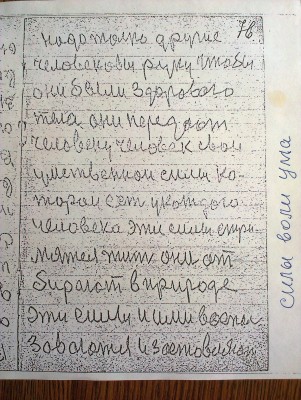 78
надо только другие
человекови руку чтобы
они были здорового
тела они передают
человеку человек свои
умственной силы ко-
торой есть у каждого
человека эти силы стре
мятся жить они от
бирают в природе
эти силы и ими
заставляют
силы воли ума